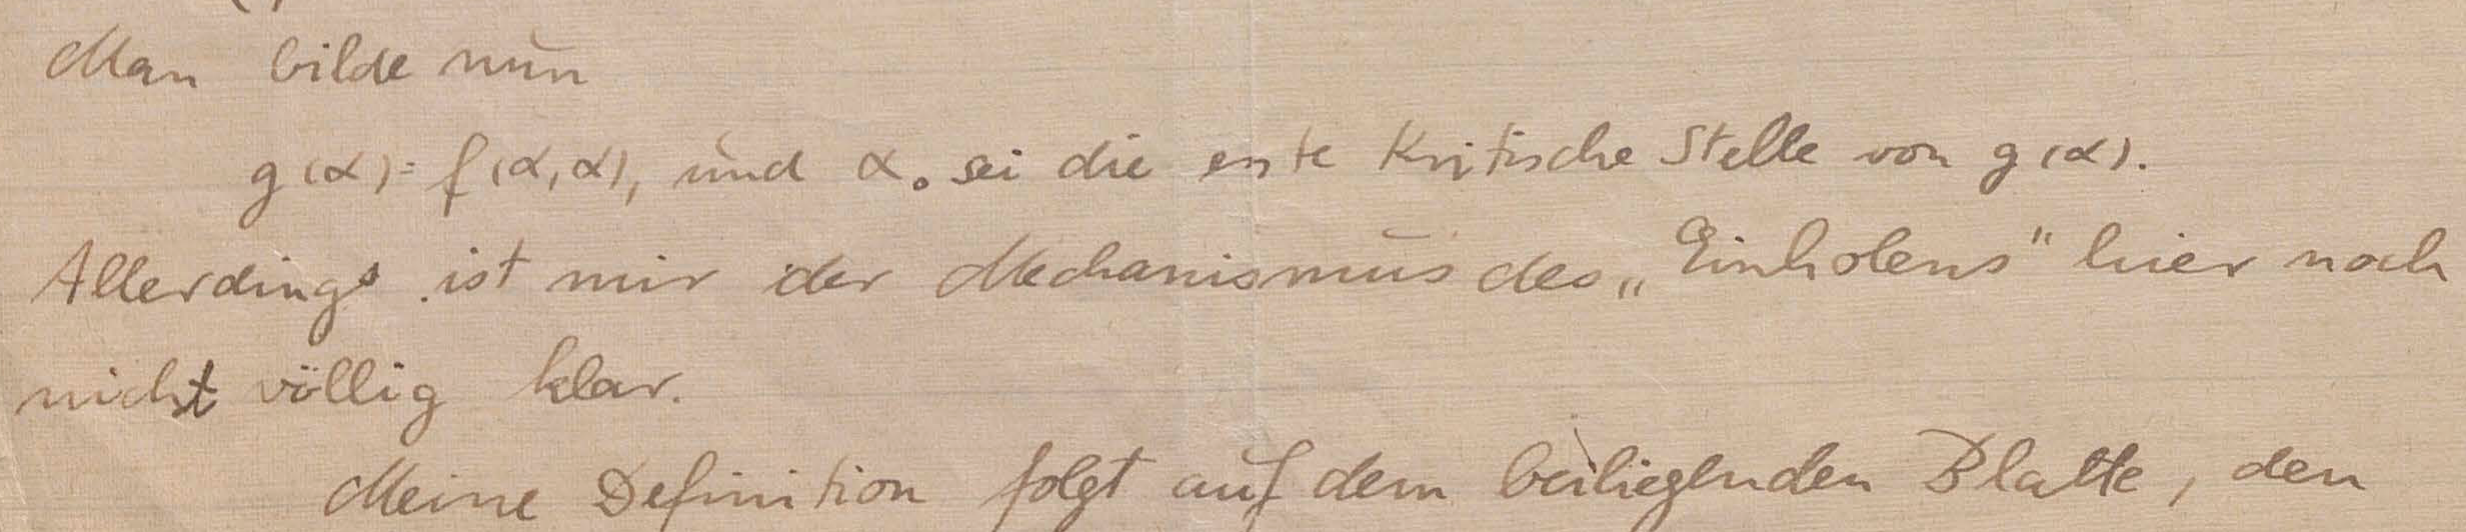 Man bilde nun
g(α) = f(α, α), und α₀ sei die erste Kritische Stelle von g(α).
Allerdings ist mir der Mechanismus des „Einholens" hier noch
nicht völlig klar.
Meine Definition folgt auf dem beiliegenden Blatte, den